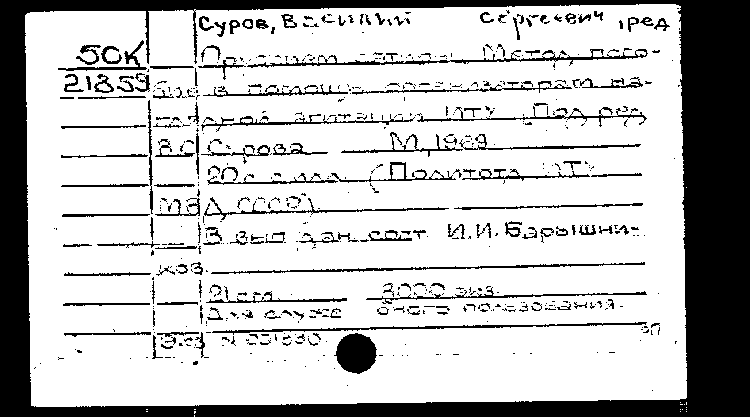 Суров, Василий Сергеевич, ред
50К
21859
Оружием сатиры. Метод. посо-
бие в помощь организаторам на-
глядной агитации ИТУ. Под ред
В.С. Сурова. М., 1969.
20 с. с илл. (Политотд. ИТУ
МВД СССР)
В вып. дан. сост. И.И. Барышни-
ков.
21 см. 3000 экз.
Для служебного пользования.
Экз. N 001830.